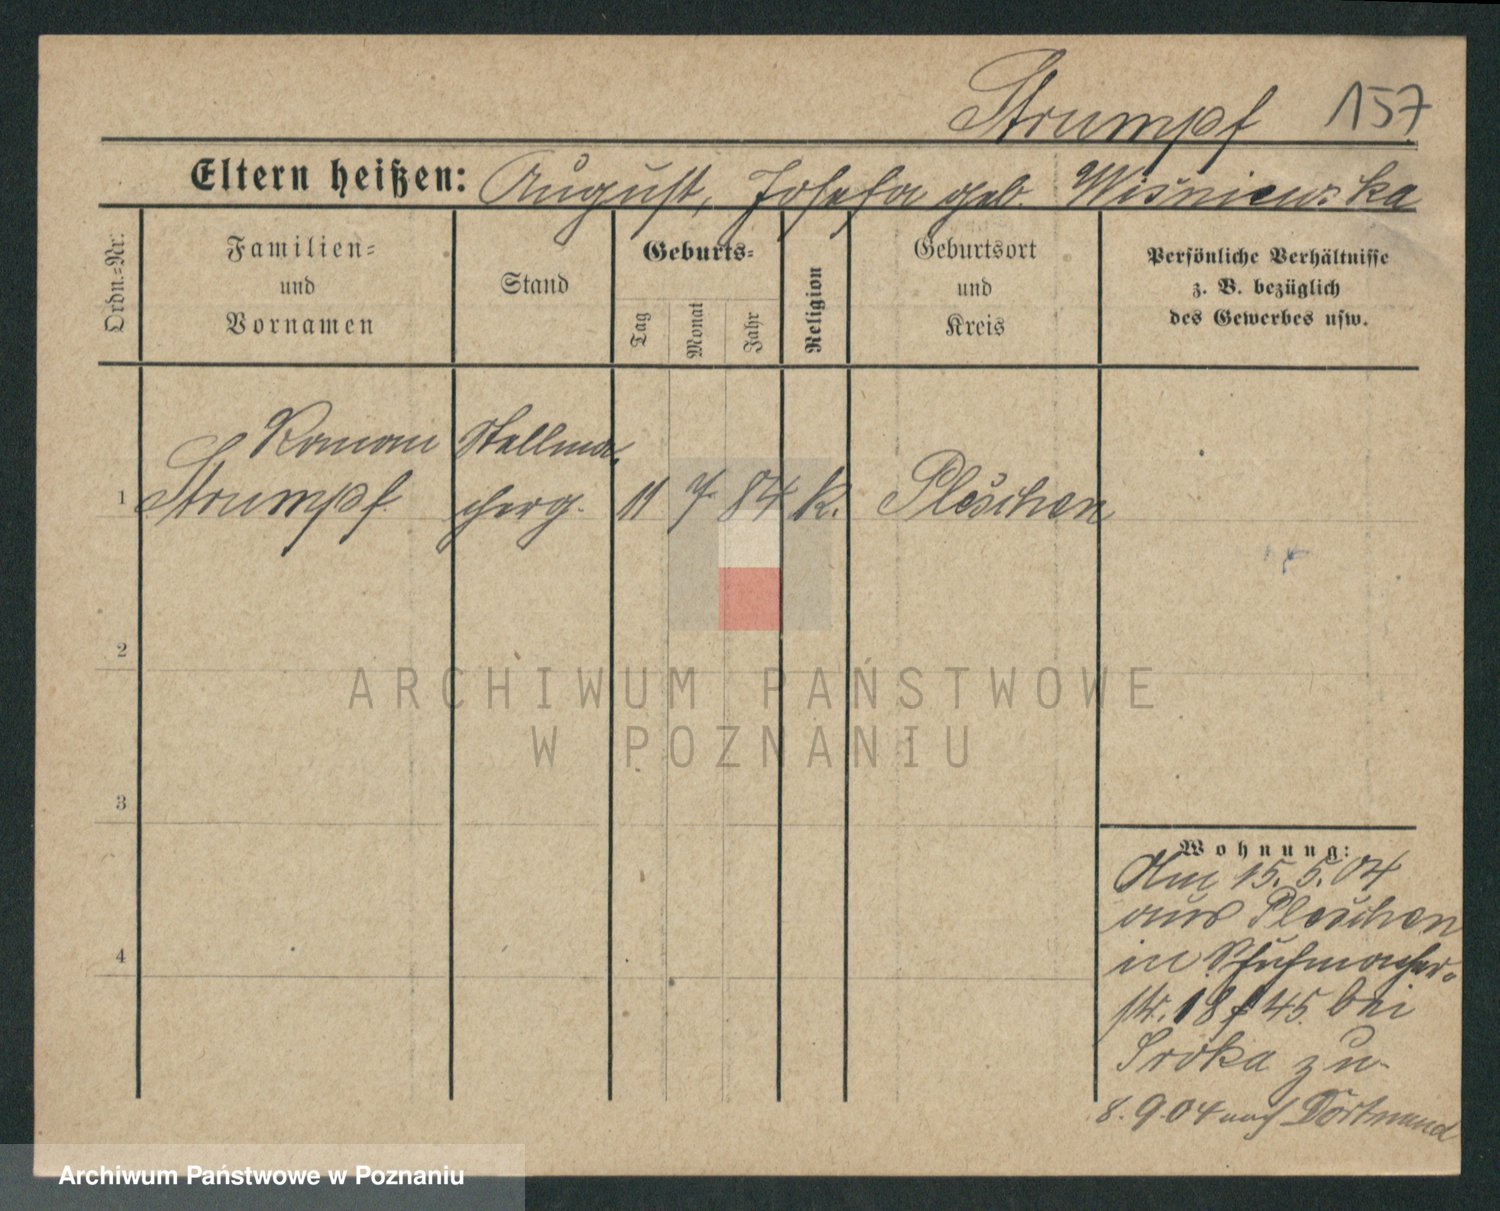 Strumpf 157
Eltern heißen: August, Josefa geb. Wiśniewska
Ordn.=Nr.
Familien=
und
Vornamen
Stand
Geburts=
Tag
Monat
Jahr
Religion
Geburtsort
und
Kreis
Persönliche Verhältnisse
z. B. bezüglich
des Gewerbes usw.
Roman Stellma
1 Strumpf cherg. 11 7 84 k. Pleschen
2
3
4
Wohnung:
Am 15. 5. 04
aus Pleschen
in Schuhmacher-
str. 18 45. bei
Sroka zu
8. 9. 04 nach Dortmund
ARCHIWUM PAŃSTWOWE
W POZNANIU
Archiwum Państwowe w Poznaniu